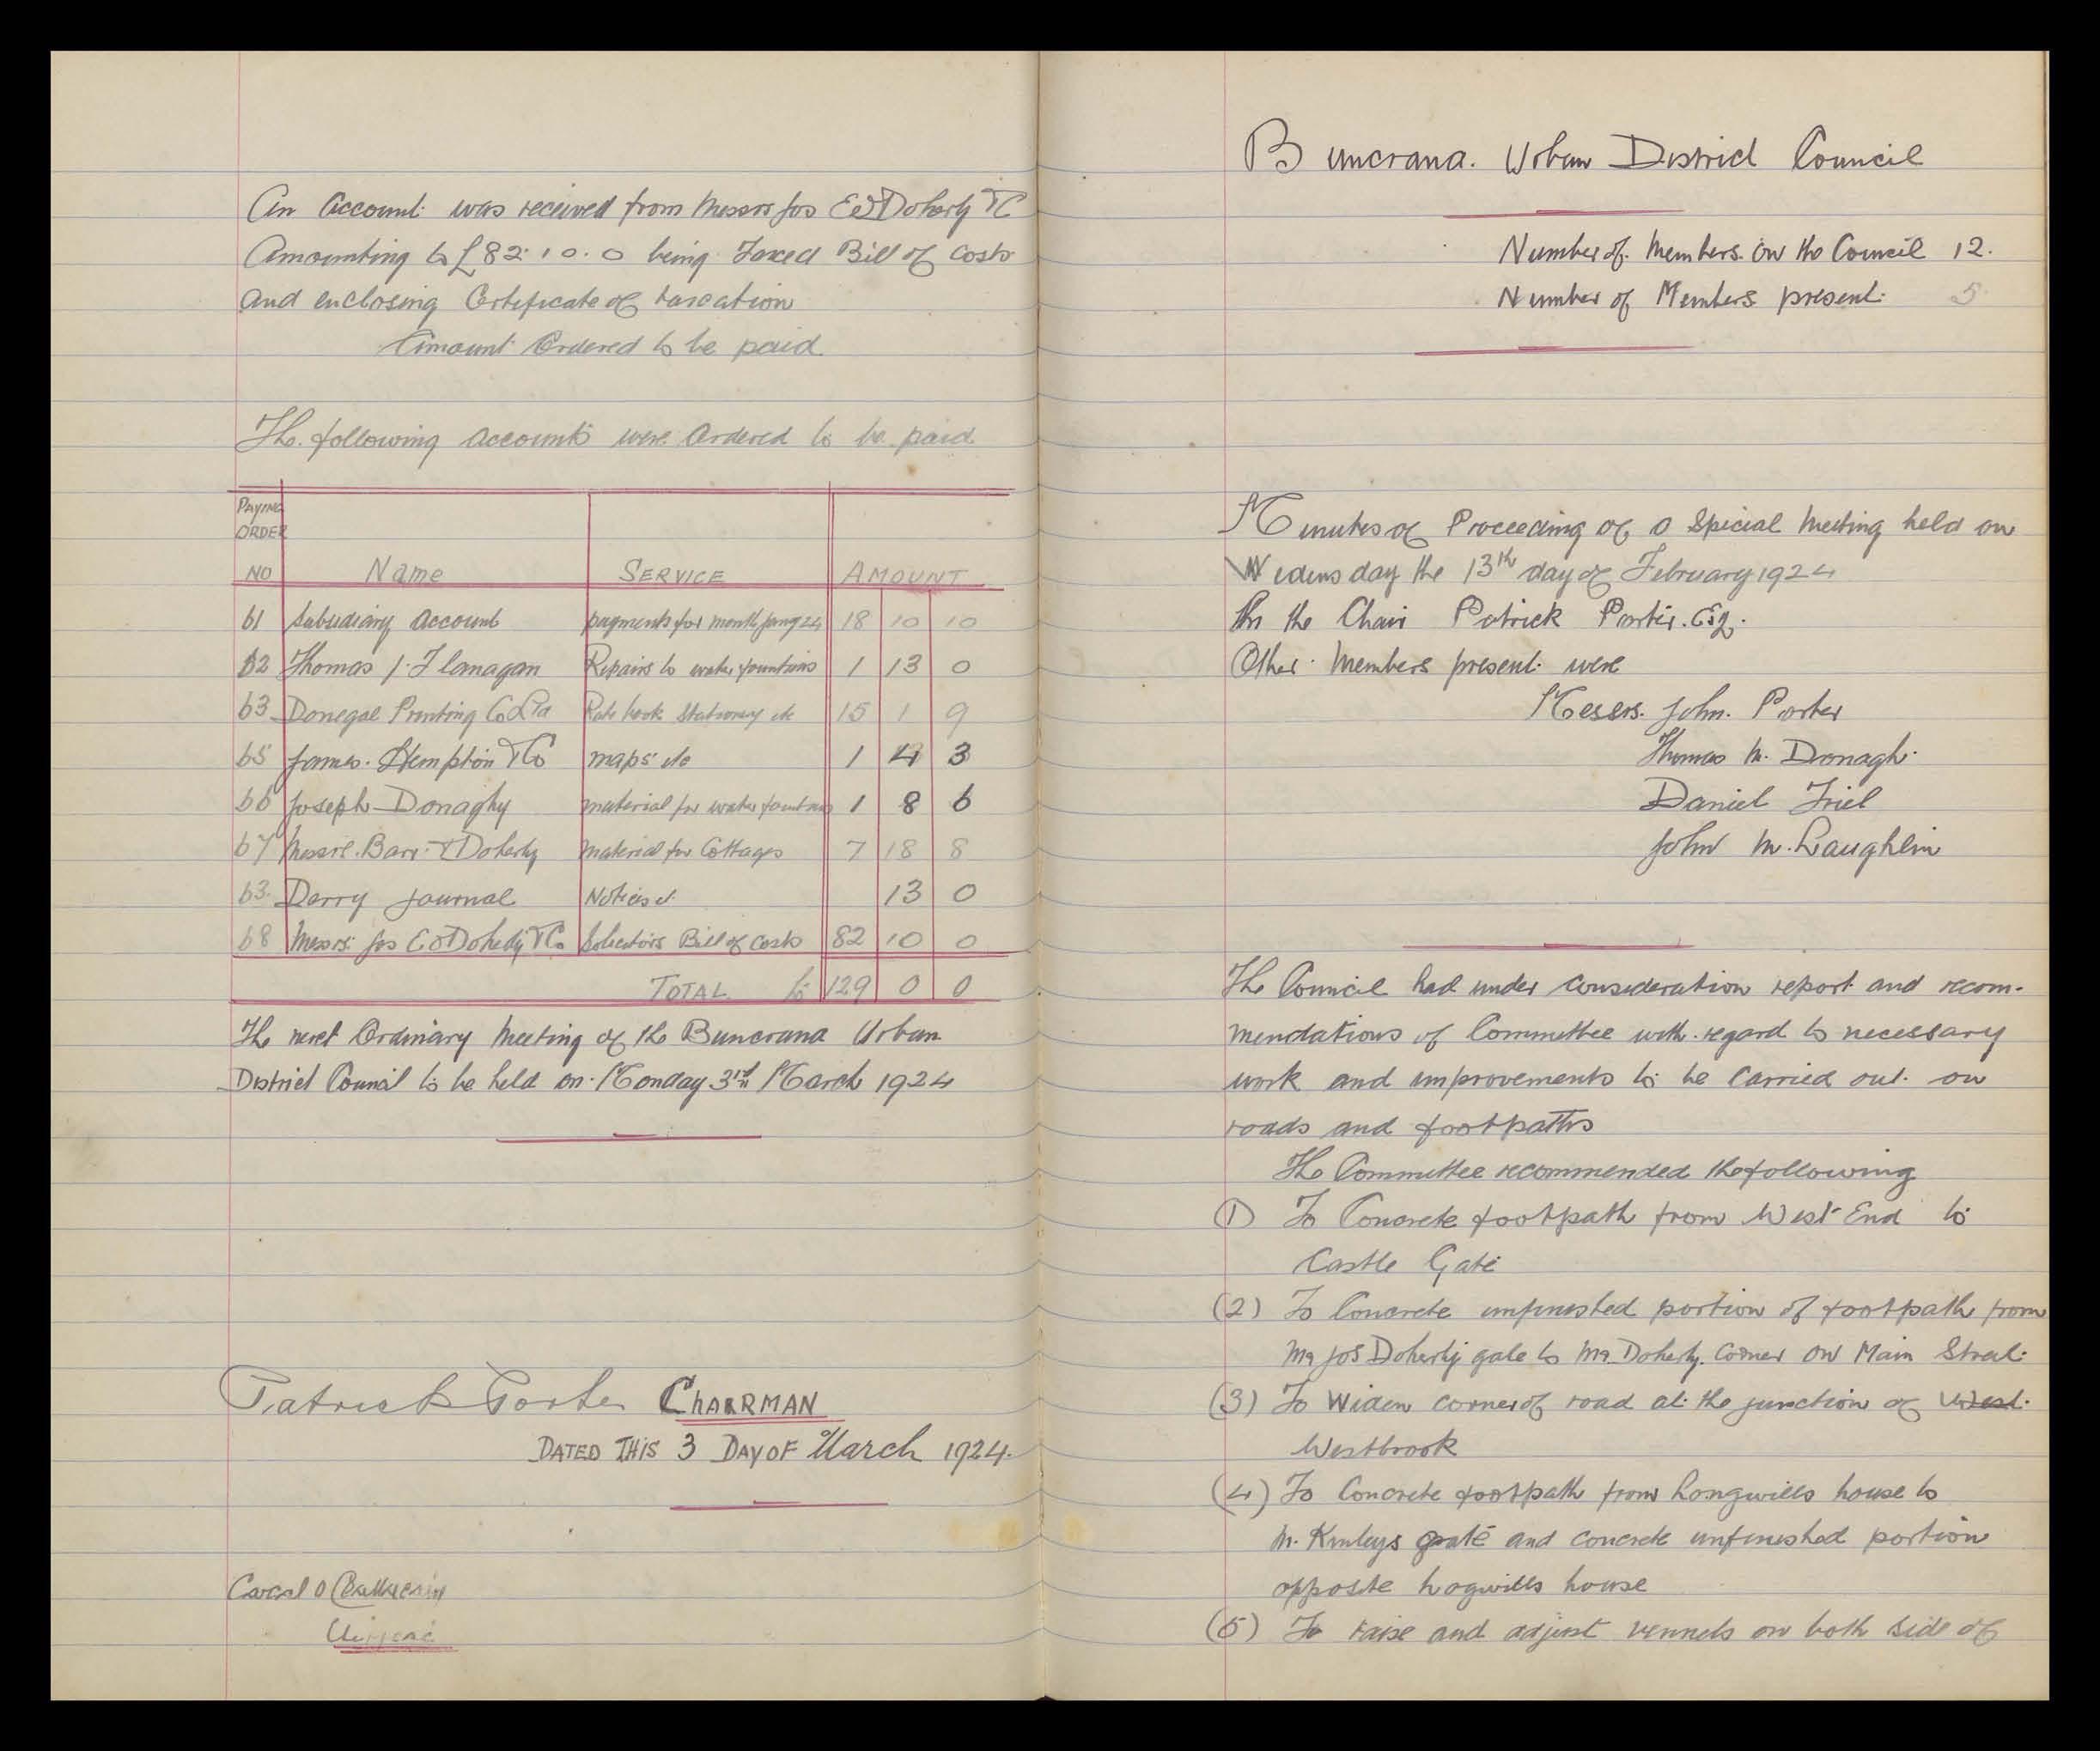 An Account was received from Messrs Jos E O'Doherty & C
Amounting to £82.10.0 being Taxed Bill of Costs
and enclosing Certificate of taxation
Amount Ordered to be paid
The following accounts were Ordered to be paid
PAYING ORDER NO Name SERVICE AMOUNT
61 Subsidiary Account payments for month Jany 24 18 10 10
62 Thomas J. Flanagan Repairs to water fountains 1 13 0
63 Donegal Printing Co Ltd Rate book Stationery etc 15 1 9
65 James. Hempton & Co maps etc 1 4 3
66 Joseph Donaghy material for water fountains 1 8 6
67 Messrs. Barr & Doherty Material for Cottages 7 18 8
63. Derry Journal Notices 13 0
68 Messrs. Jos E O'Doherty & Co. Solicitors Bill of Costs 82 10 0
TOTAL £ 129 0 0
The next Ordinary Meeting of the Buncrana Urban
District Council to be held on Monday 3rd March 1924
Patrick Porter CHAIRMAN
DATED THIS 3 DAY OF March 1924.
Buncrana. Urban District Council
Number of Members on the Council 12.
Number of Members present. 5
Minutes of Proceeding of a Special Meeting held on
Wedensday the 13th day of February 1924
In the Chair Patrick Porter. Esq.
Other Members present were
Messrs. John. Porter
Thomas Mc. Donagh.
Daniel Friel
John Mc. Laughlin
The Council had under consideration report and recom-
mendations of Committee with regard to necessary
work and improvements to be carried out on
roads and footpaths
The Committee recommended the following
(1) To Concrete footpath from West End to
Castle Gate
(2) To Concrete unfinished portion of footpath from
Mr Jos Doherty gate to Mr Doherty Corner on Main Street.
(3) To Widen corner of road at the junction of West.
Westbrook
(4) To Concrete footpath from Longwills house to
Mc. Kinleys gate and concrete unfinished portion
opposite Logwills house
(5) To raise and adjust vennels on both side of